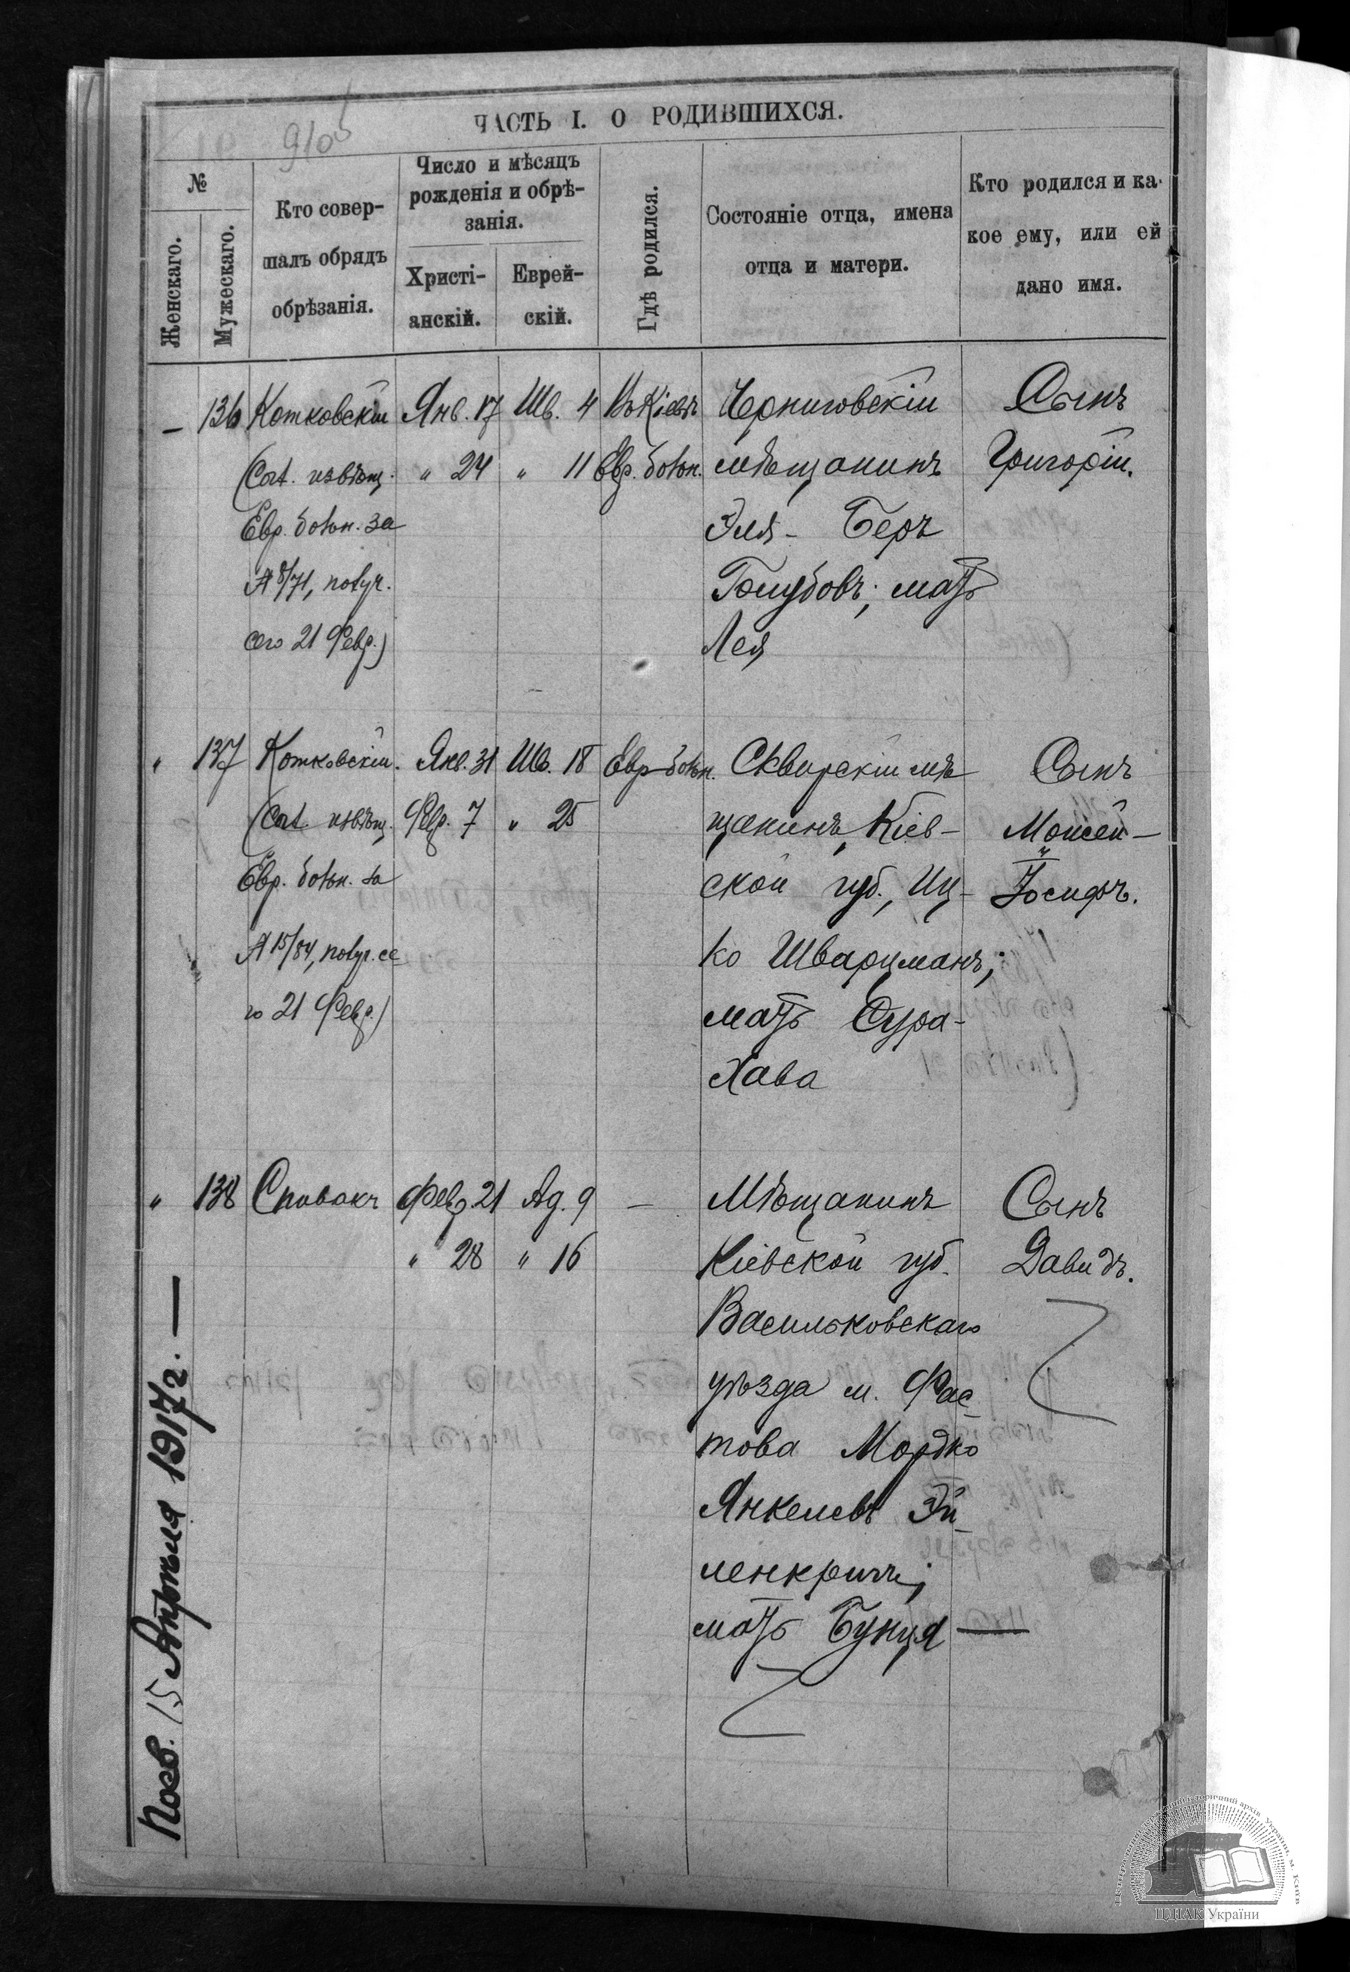 ЧАСТЬ I. О РОДИВШИХСЯ.
№
Женскаго.
Мужескаго.
Кто совер-
шалъ обрядъ
обрѣзанія.
Число и мѣсяцъ
рожденія и обрѣ-
занія.
Христі-
анскій.
Еврей-
скій.
Гдѣ родился.
Состояніе отца, имена
отца и матери.
Кто родился и ка-
кое ему, или ей
дано имя.
— 136 Котковскій Янв. 17 Шв. 4 Въ Кіевѣ Черниговскій Сынъ
(Сог. извѣщ. " 24 " 11 Евр. больн. мѣщанинъ Григорій.
Евр. больн. за Эля - Беръ
№ 8/71, получ. Голубовъ; мать
сего 21 Февр.) Лея
" 137 Котковскій. Янв. 31 Шв. 18 Евр. больн. Сквирскій мѣ Сынъ
(Сог. извѣщ. Февр. 7 " 25 щанинъ, Кіев- Моисей-
Евр. больн. за ской губ., Иц- Іосифъ.
№ 15/84, получ. се- ко Шварцманъ;
го 21 Февр.) мать Сура-
Хава
" 138 Спивакъ Февр. 21 Ад. 9 — Мѣщанинъ Сынъ
" 28 " 16 Кіевской губ. Давидъ.
Васильковскаго
уѣзда м. Фас-
това Мордко
Янкелевъ Эй-
ленкригъ;
мать Бунця —
Посв. 15 Апрѣля 1917 г. —
ЦДІАК України